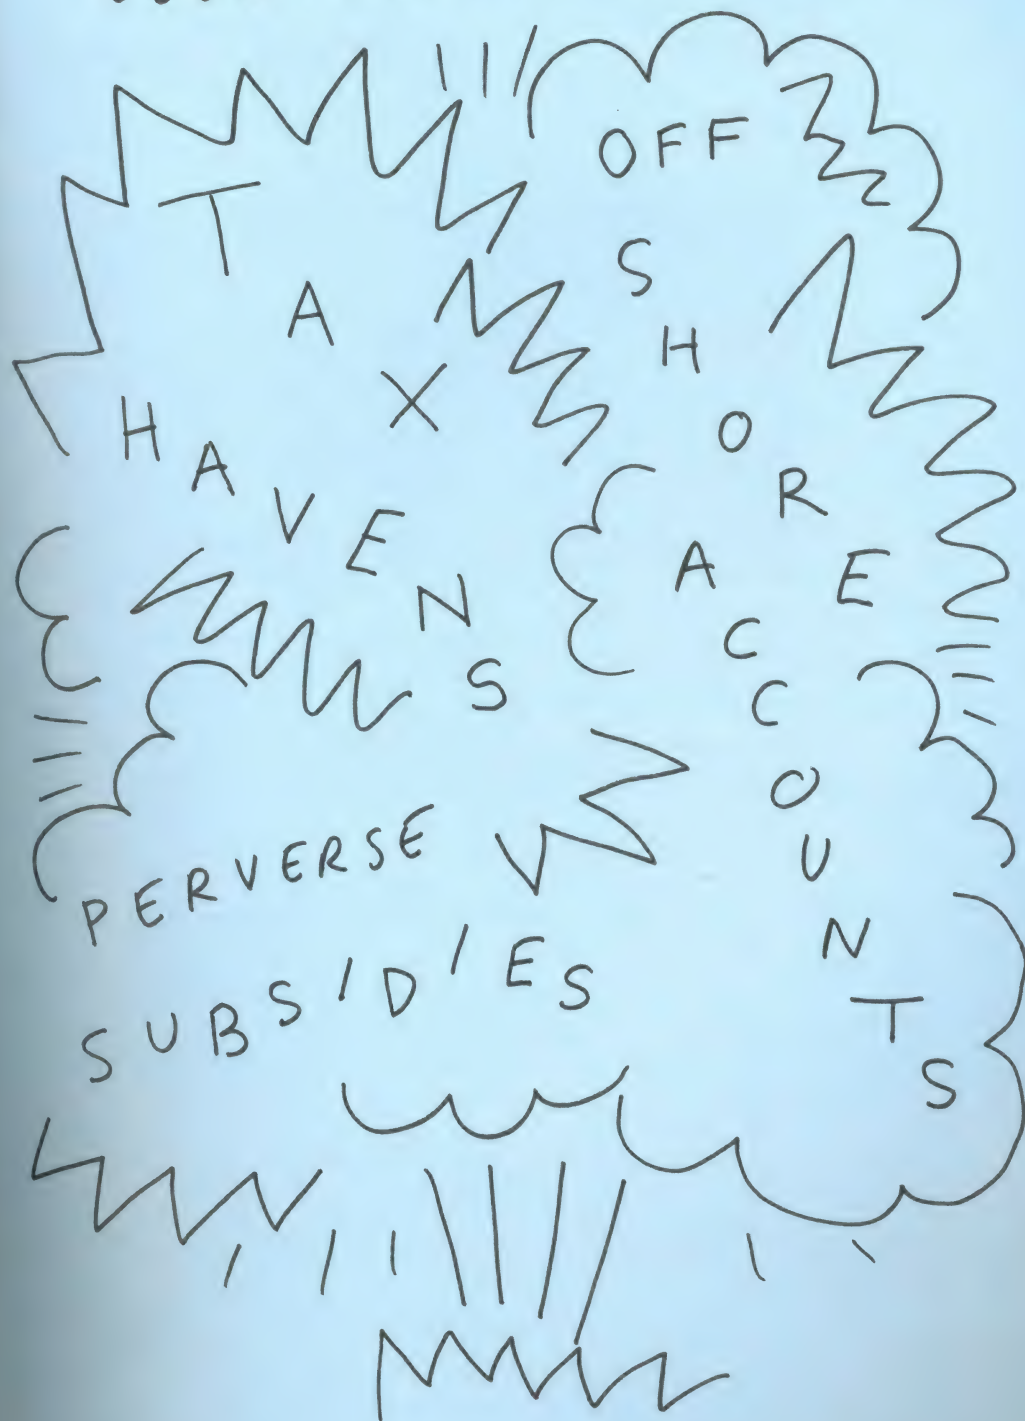 TAX
HAVENS
OFF
SHORE
ACCOUNTS
PERVERSE
SUBSIDIES